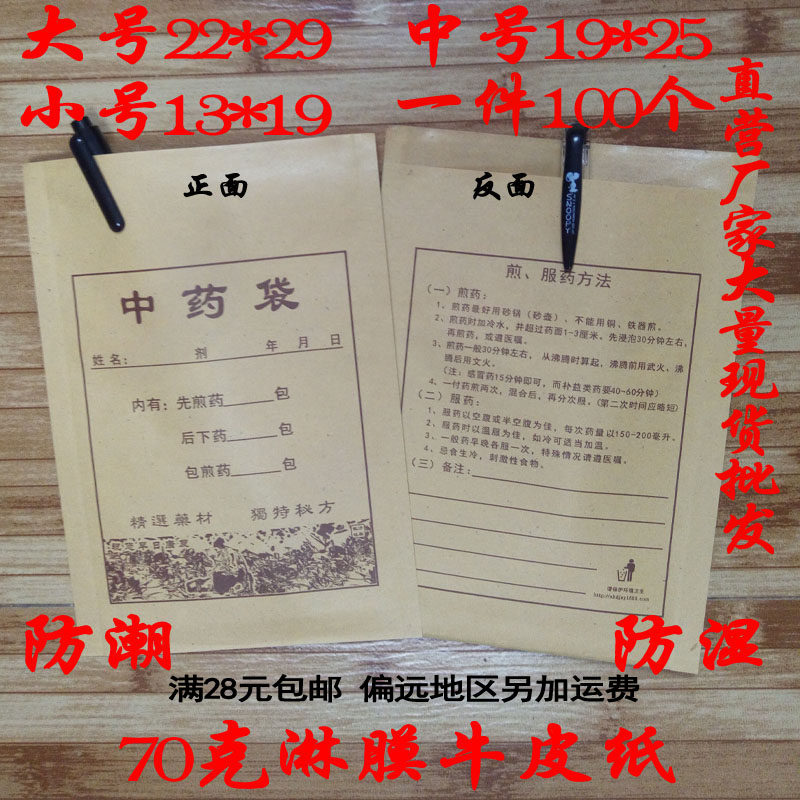 大号22*29 中号19*25
小号13*19 一件100个
直营厂家大量现货批发
正面
反面
SNOOPY
中药袋
姓名： 剂 年 月 日
内有：先煎药 包
后下药 包
包煎药 包
精選藥材 獨特秘方
煎、服药方法
（一）煎药：
1、煎药最好用砂锅（砂壶）、不能用铜、铁器煎。
2、煎药时加冷水，并超过药面1-3厘米，先浸泡30分钟左右，
再煎药，或遵医嘱。
3、煎药一般30分钟左右，从沸腾时算起，沸腾前用武火、沸
腾后用文火。
（注：感冒药15分钟即可，而补益类药要40~60分钟）
4、一付药煎两次，混合后，再分次服。（第二次时间应略短）
（二）服药：
1、服药以空腹或半空腹为佳，每次药量以150-200毫升。
2、服药时以温服为佳，如冷可适当加温。
3、一般药早晚各服一次，特殊情况请遵医嘱。
4、忌食生冷，刺激性食物。
（三）备注：
请保护环境卫生
防潮
防湿
满28元包邮 偏远地区另加运费
70克淋膜牛皮纸